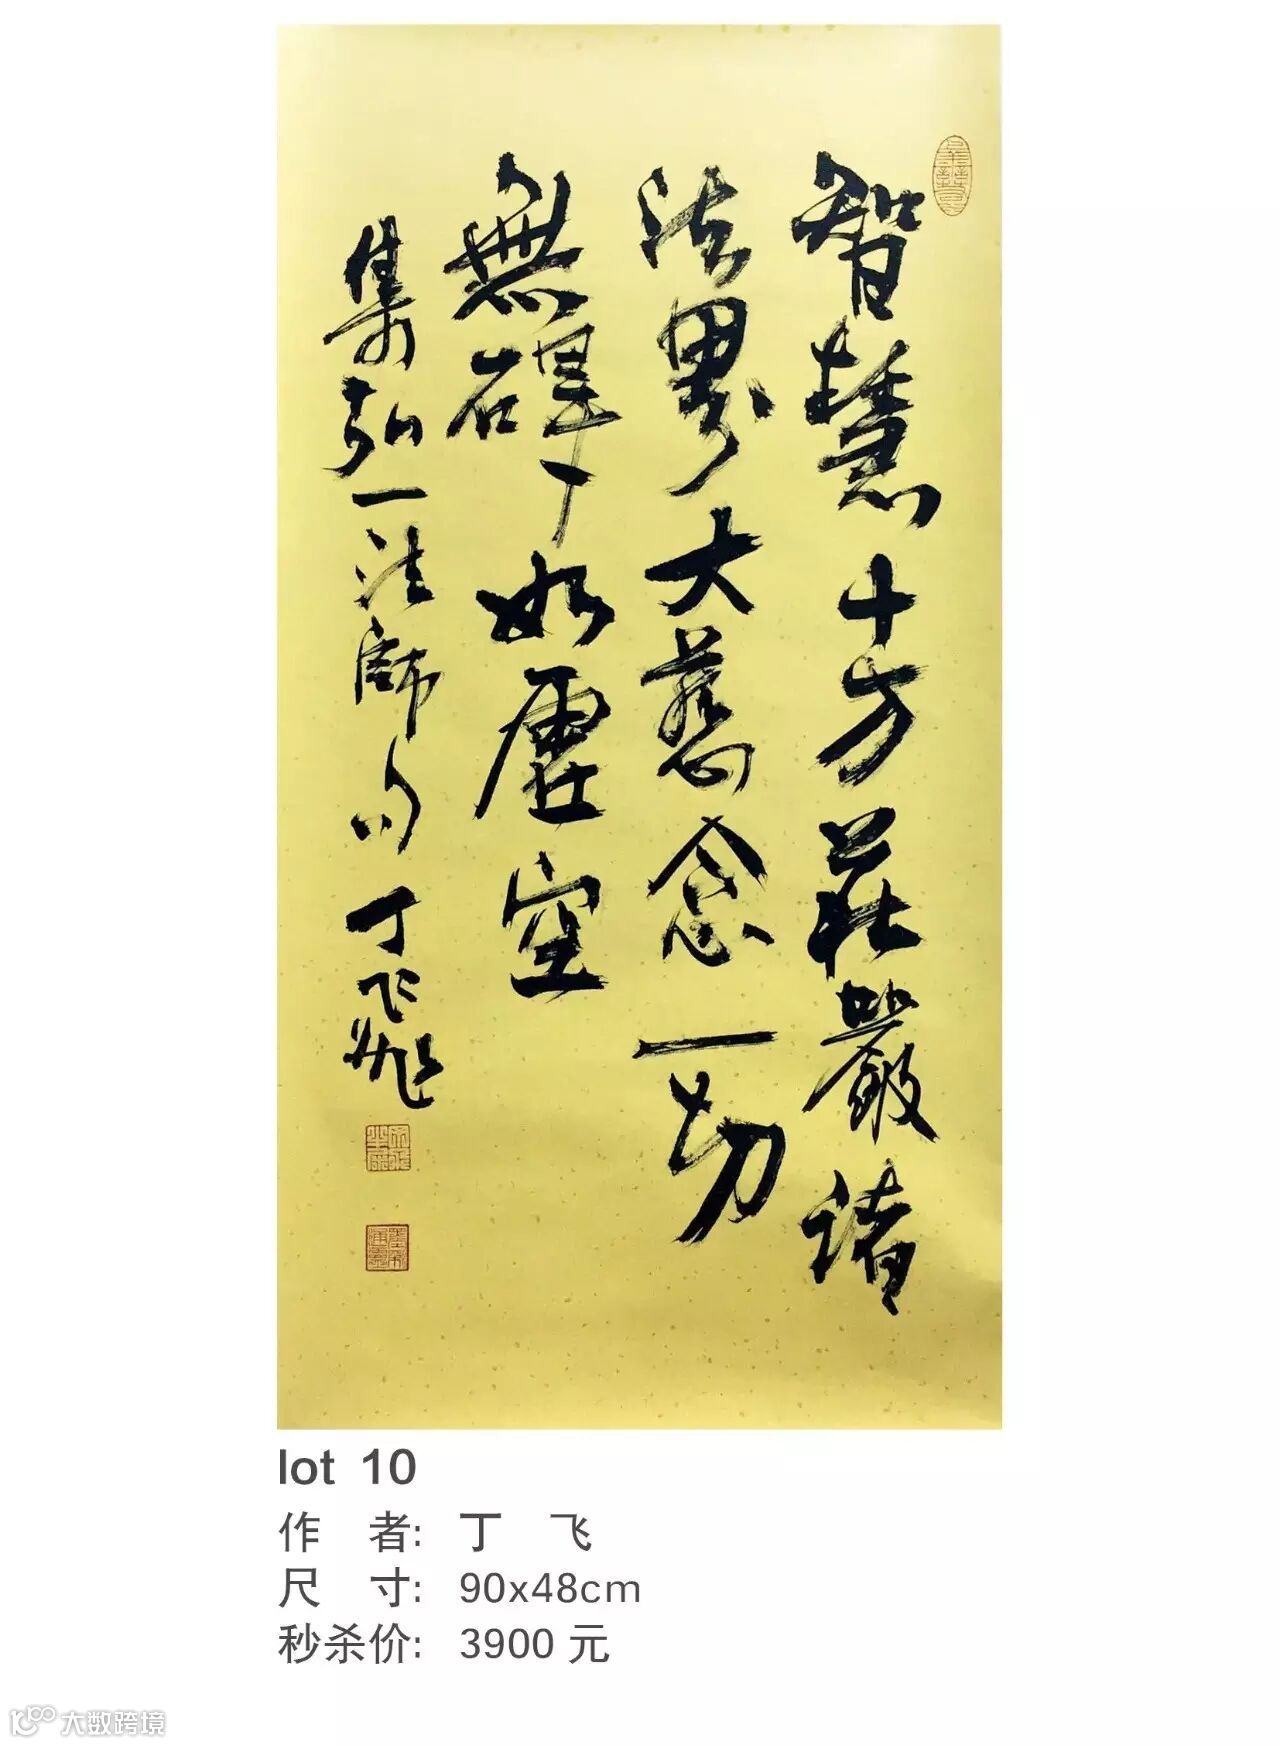 智慧十方莊嚴諸
法界大慈念一切
無礙如虛空
集弘一法師句丁飞
lot 10
作 者: 丁 飞
尺 寸: 90x48cm
秒杀价: 3900 元
大数跨境